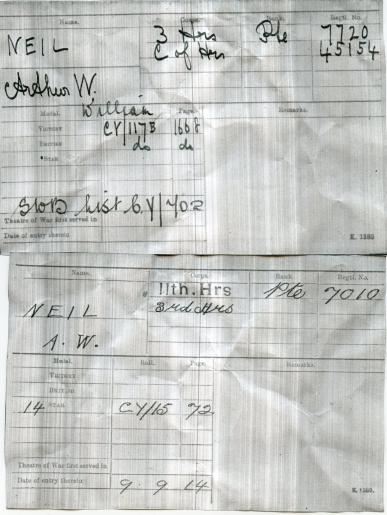 Name. Corps. Rank. Regtl. No.
NEIL 3 Hrs Pte 7720
C of Hrs 45154
Arthur W.
William
Medal. Page. Remarks.
Victory CY/117B 1668
British do do
Star
SWB List CY/702
Theatre of War first served in
Date of entry therein K. 1380
Name. Corps. Rank. Regtl. No.
11th. Hrs Pte 7010
NEIL 3rd Hrs
A. W.
Medal. Roll. Page. Remarks.
Victory
British
14 Star CY/15 72
Theatre of War first served in
Date of entry therein 9. 9. 14 K. 1380.